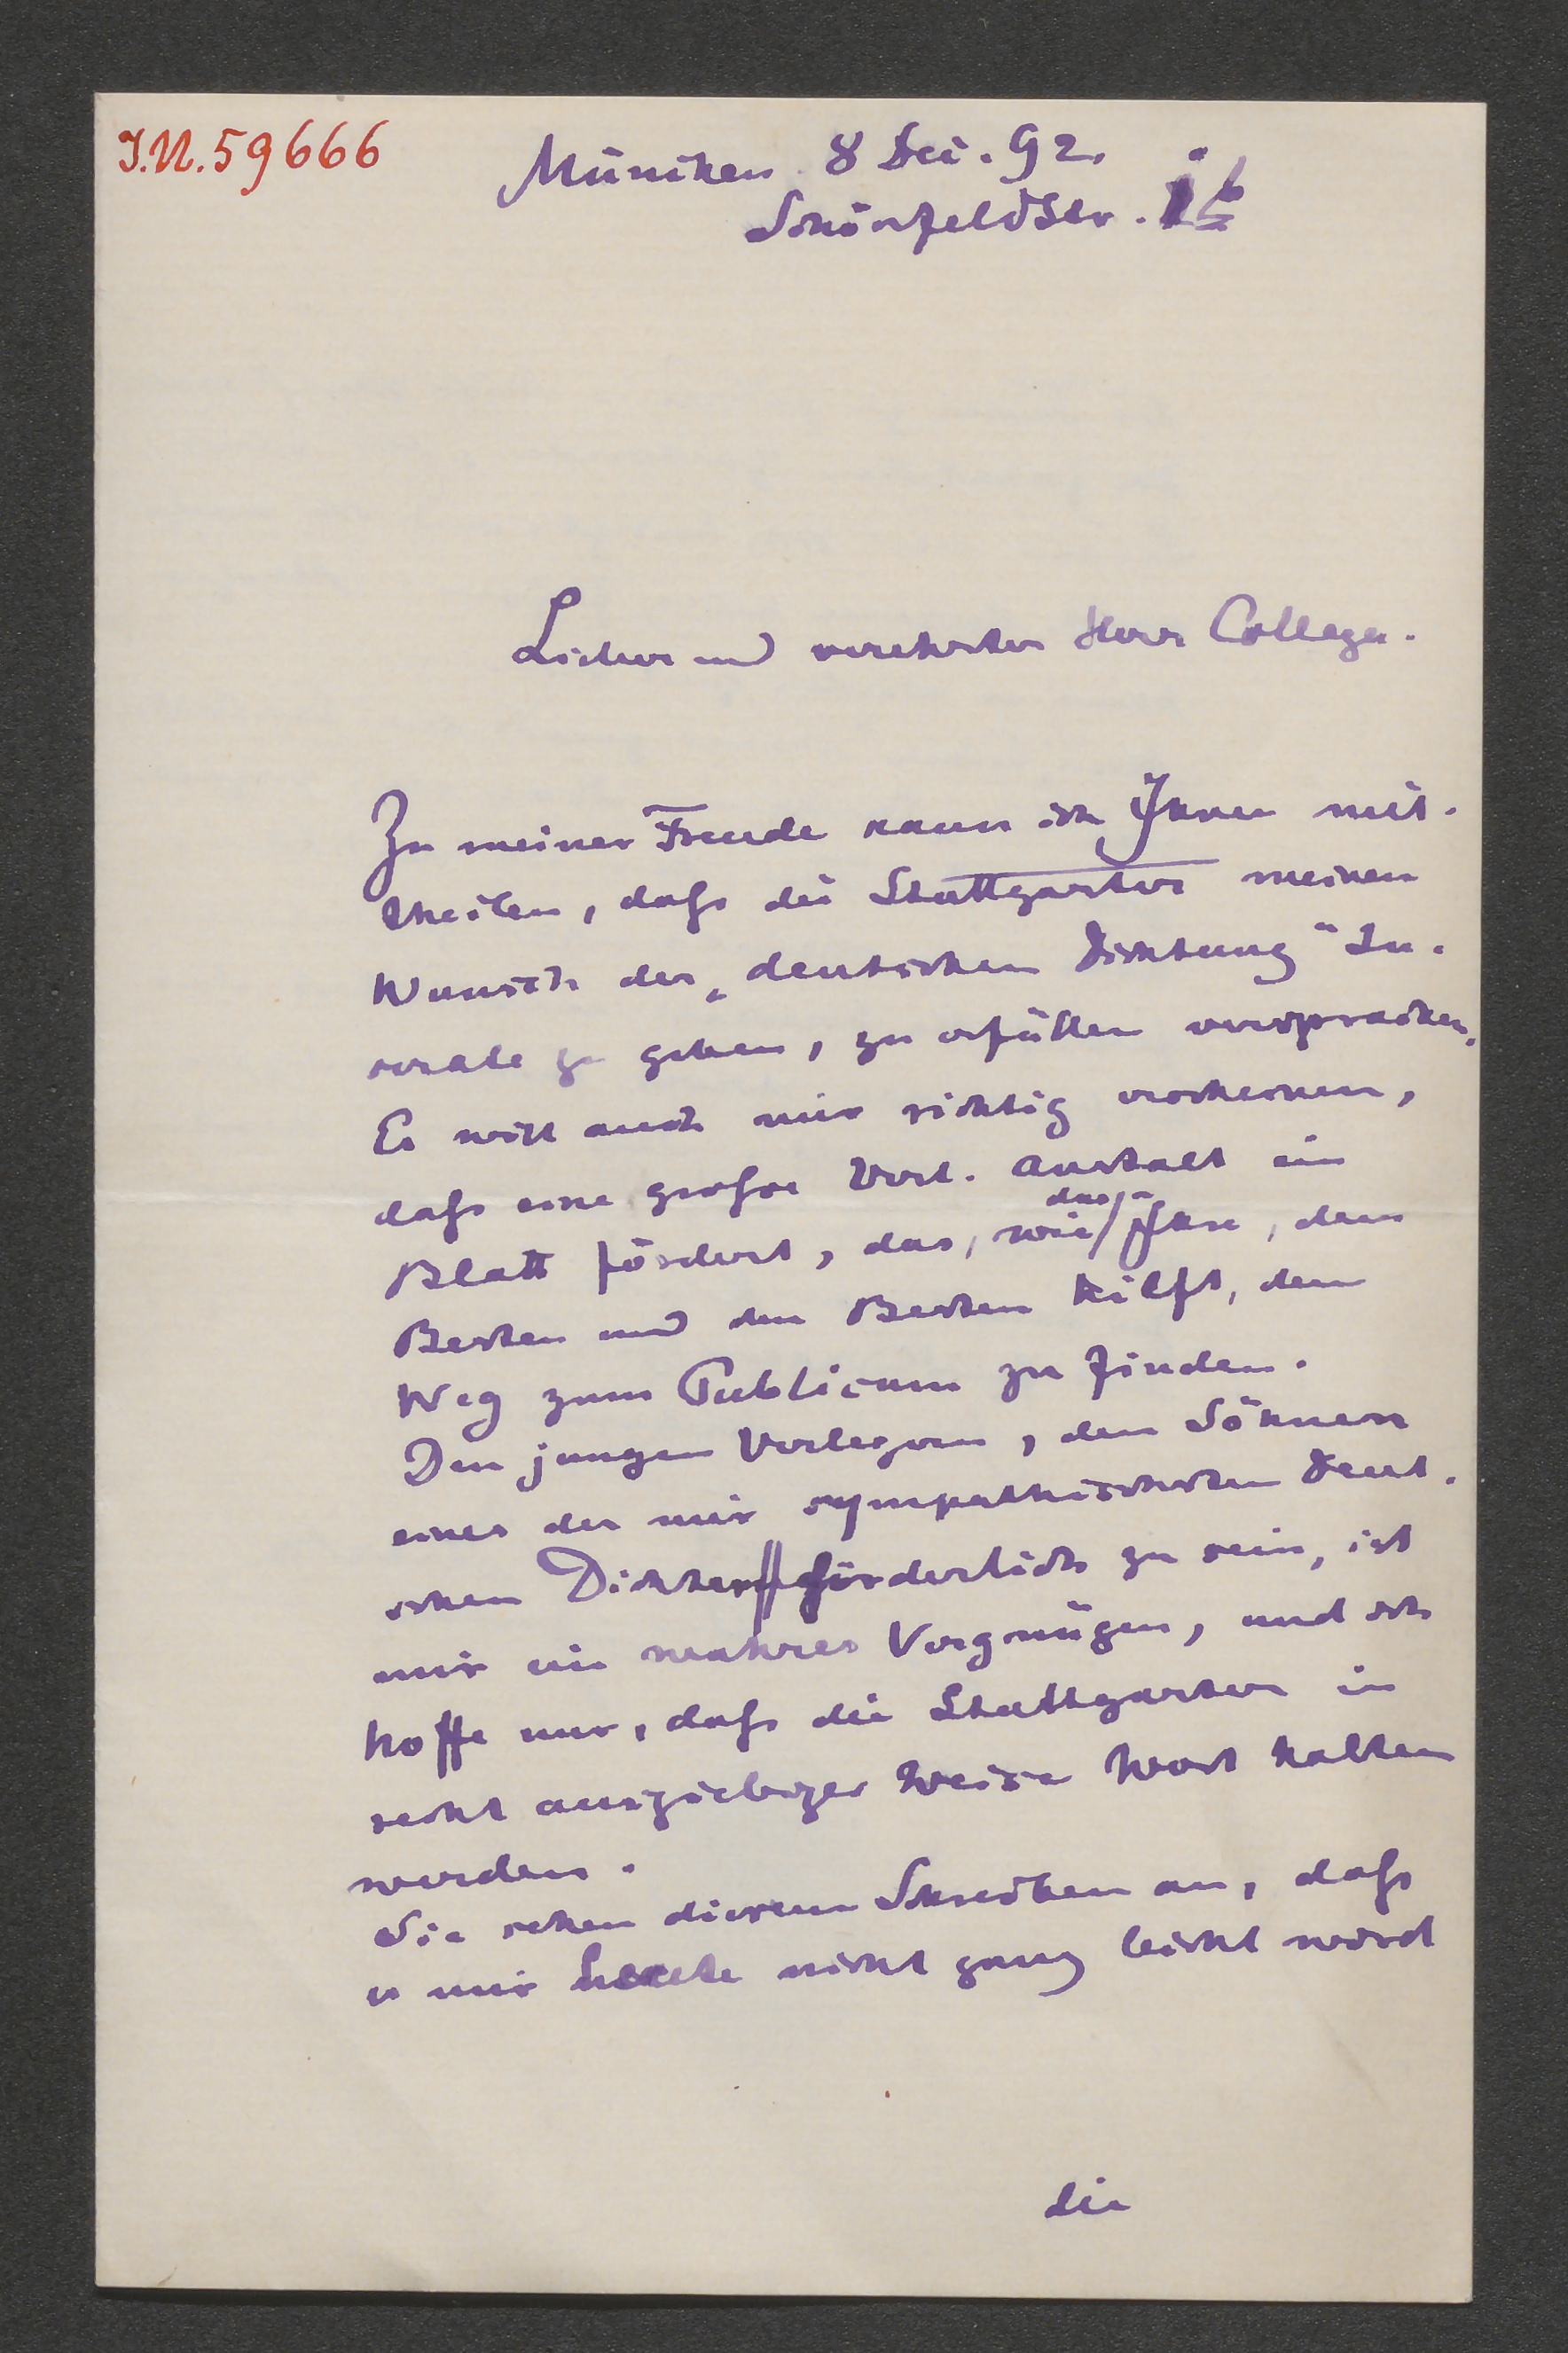 I.N. 59666
München 8 Dec. 92.
Schönfeldstr.
Lieber und verehrter Herr College.
Zu meiner Freude kann ich Ihnen mit-
theilen, daß die Stuttgarter meinen
Wunsch der „deutschen Dichtung“ In-
serate zu geben, zu erfüllen versprachen.
Es will auch mir richtig erscheinen,
daß eine große Verl. Anstalt ein
Blatt fördert, das, wie das Ihre, dem
Besten und den Besten hilft, den
Weg zum Publicum zu finden.
Den jungen Verlegern, den Söhnen
eines der mir sympathischsten Deut-
schen Dichter förderlich zu sein, ist
mir ein wahres Vergnügen, und ich
hoffe nur, daß die Stuttgarter in
recht ausgiebiger Weise Wort halten
werden.
Sie sehen diesem Schreiben an, daß
es mir heute nicht ganz leicht wird
die